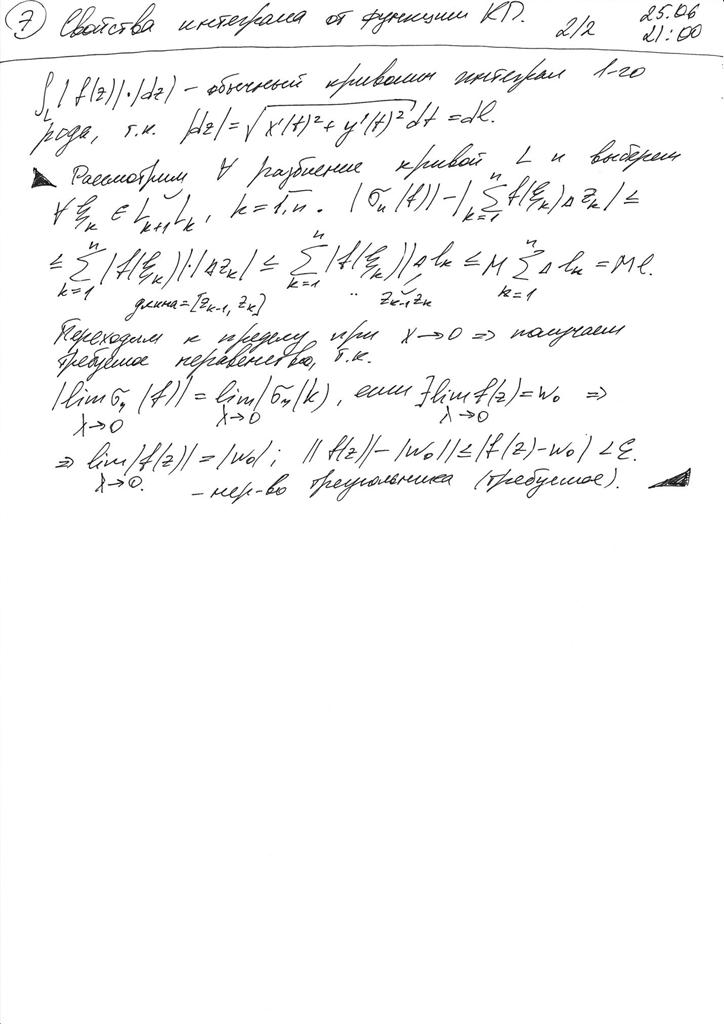 ⑦ Свойства интеграла от функции КП. 2/2 25.06
21:00
∫_L |f(z)|·|dz| – обычный криволин интеграл 1-го
рода, т.к. |dz| = √(x'(t)² + y'(t)²) dt = dl.
Рассмотрим ∀ разбиение кривой L и выберем
∀ ξ_k ∈ L_{k+1}L_k, k = 1,n. |σ_n(f)| – |∑_{k=1}^n f(ξ_k)Δz_k| ≤
≤ ∑_{k=1}^n |f(ξ_k)|·|Δz_k| ≤ ∑_{k=1}^n |f(ξ_k)|Δl_k ≤ M ∑_{k=1}^n Δl_k = Ml.
длина = [z_{k-1}, z_k] z_{k-1}z_k
Переходим к пределу при λ→0 ⇒ получаем
требуемое неравенство, т.к.
|lim_{λ→0} σ_n(f)| = lim_{λ→0} |σ_n(k), если ∃ lim_{λ→0} f(z) = w₀ ⇒
⇒ lim_{λ→0} |f(z)| = |w₀|; ||f(z)| – |w₀|| ≤ |f(z) – w₀| < ε.
– нер-во треугольника (требуемое).